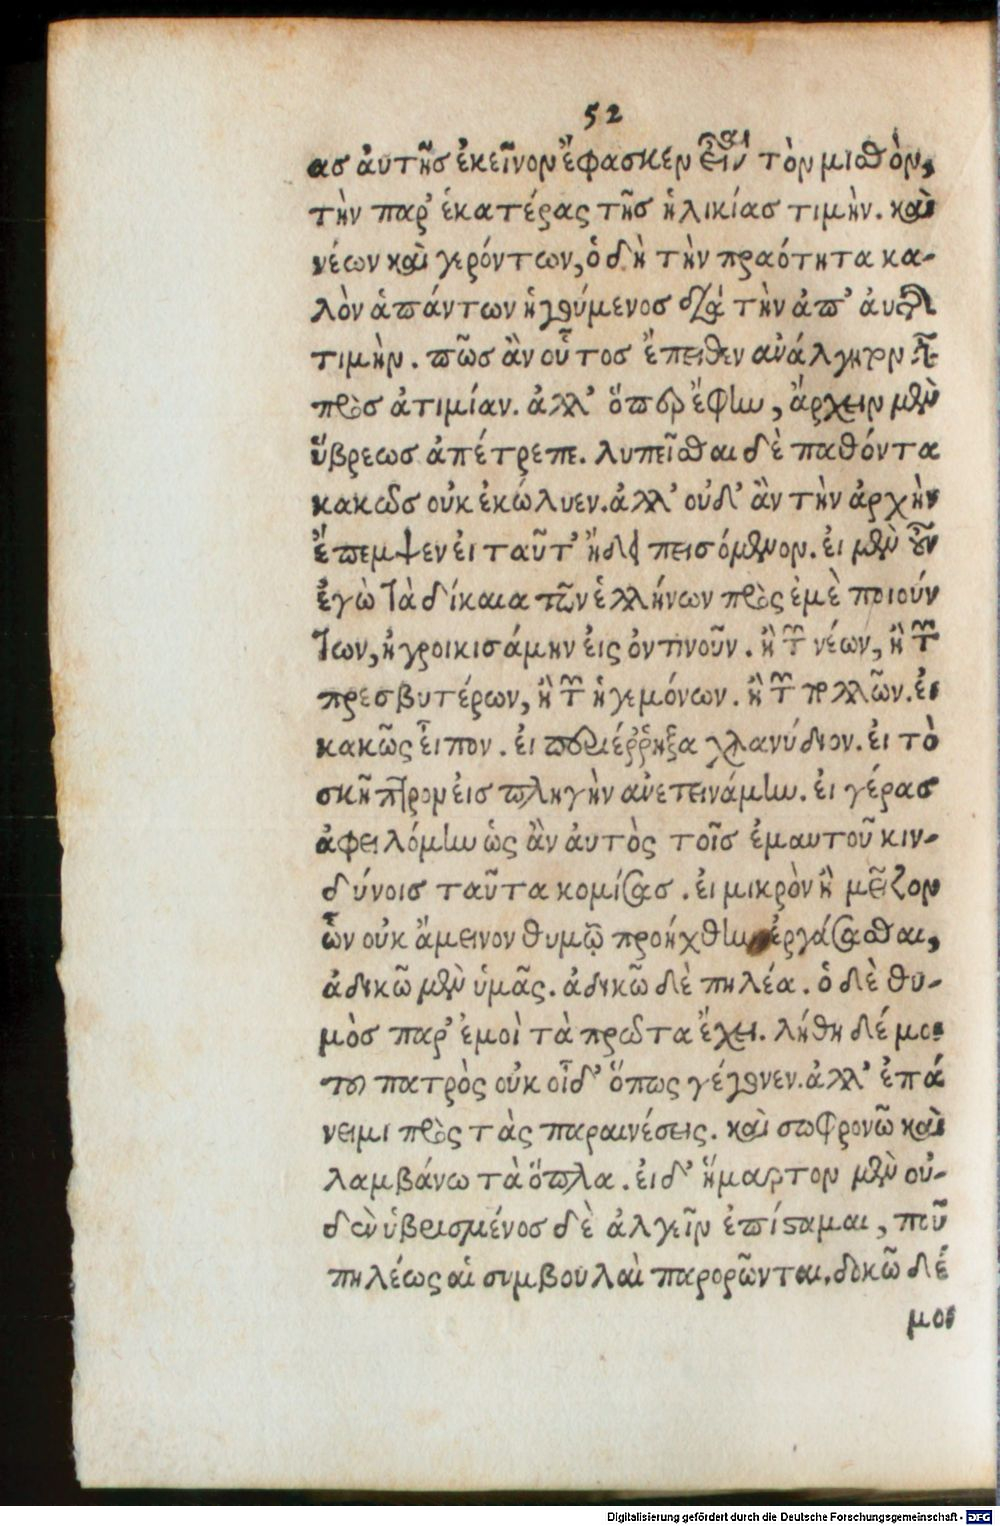 52
ας ἀυτῆς ἐκεῖνον ἔφασκεν εἶναι τὸν μισθὸν,
τὴν παρ' ἑκατέρας τῆς ἡλικίας τιμὴν. καὶ
νέων καὶ γερόντων, ὁ δὴ τὴν πραότητα κα-
λὸν ἁπάντων ἡγούμενος διὰ τὴν ἀπ' ἀυτῆς
τιμὴν. πῶς ἂν οὗτος ἔπειθεν ἀνάλγητον εἶναι
πρὸς ἀτιμίαν. ἀλλ' ὅπερ ἔφην, ἄρχειν μὲν
ὕβρεως ἀπέτρεπε. λυπεῖσθαι δὲ παθόντα
κακῶς οὐκ ἐκώλυεν. ἀλλ' οὐδ' ἂν τὴν ἀρχὴν
ἔπεμψεν ἐι ταῦτ' ἤδει πεισόμενον. ἐι μὲν οὖν
ἐγὼ τὰ δίκαια τῶν ἑλλήνων πρὸς ἐμὲ ποιούν
των, ἠγροικισάμην ἐις ὁντινοῦν. ἢ τῶν νέων, ἢ τῶν
πρεσβυτέρων, ἢ τῶν ἡγεμόνων. ἢ τῶν πολλῶν. ἐι
κακῶς εἶπον. ἐι περιέῤῥηξα χλανύδιον. ἐι τὸ
σκῆπτρον ἐις πληγὴν ἀνετεινάμην. ἐι γέρας
ἀφειλόμην ὡς ἂν ἀυτὸς τοῖς ἐμαυτοῦ κιν-
δύνοις ταῦτα κομίσας. ἐι μικρὸν ἢ μεῖζον
ὧν οὐκ ἄμεινον θυμῷ προήχθην ἐργάσασθαι,
ἀδικῶ μὲν ὑμᾶς. ἀδικῶ δὲ πηλέα. ὁ δὲ θυ-
μὸς παρ' ἐμοὶ τὰ πρῶτα ἔχει. λήθη δέ μοι
του πατρὸς οὐκ οἶδ' ὅπως γέγονεν. ἀλλ' ἐπά
νειμι πρὸς τὰς παραινέσεις. καὶ σωφρονῶ καὶ
λαμβάνω τὰ ὅπλα. ἐι δ' ἥμαρτον μὲν οὐ-
δὲν ὑβρισμένος δὲ ἀλγεῖν ἐπίσταμαι, ποῦ
πηλέως αἱ συμβουλαὶ παρορῶνται. δοκῶ δέ
μοι
Digitalisierung gefördert durch die Deutsche Forschungsgemeinschaft - DFG